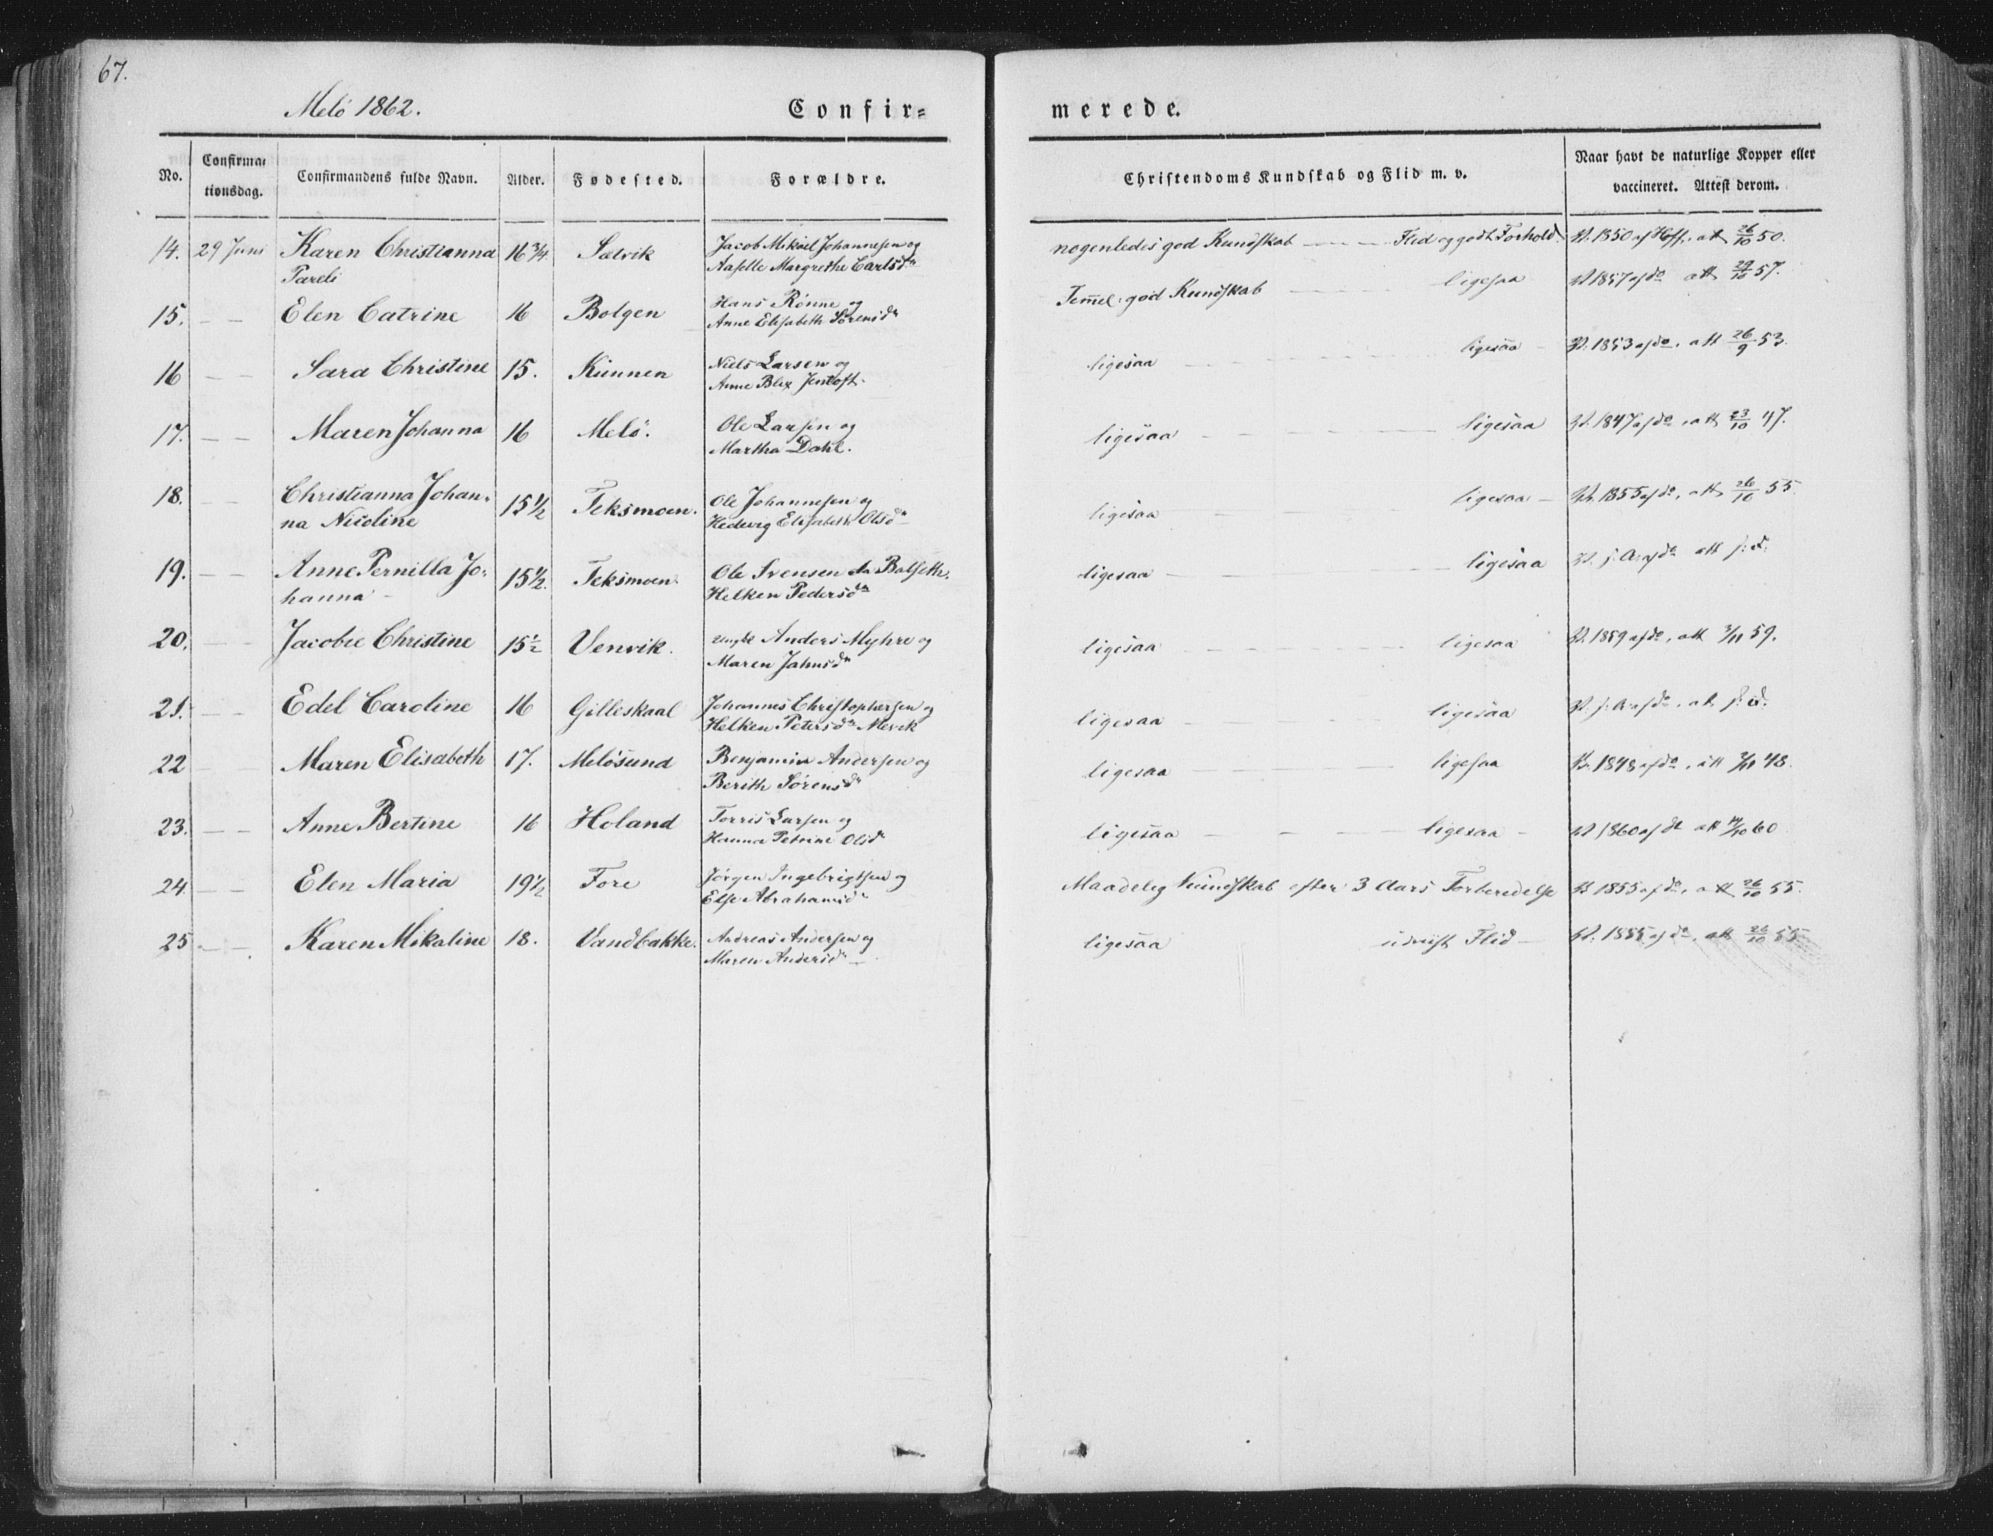 67.
Melö 1862.
Confir=
merede.
No.
Confirma=
tionsdag.
Confirmandens fulde Navn.
Alder.
Fødested.
Forældre.
Christendoms Kundskab og Flid m. v.
Naar havt de naturlige Kopper eller
vaccineret. Attest derom.
14. 29 Juni Karen Christianna 16 3/4 Sælvik Jacob Mikael Johannesen og nogenledes god Kundskab — — — Flid og godt Forhold. V. 1850 af Hoff, att 26/10 50.
Pareli Margrethe Carlsdr
15. — — Elen Catrine 16 Bolgen Hans Rönne og Temel. god Kundskab — — — ligesaa V 1857 af do att 29/10 57.
Anne Elisabeth Sörensdr
16 — — Sara Christine 15. Kunnen Niels Larsen og ligesaa — — — ligesaa — V. 1853 af do, att 26/9 53.
Anne Blix Jentoft.
17. — — Maren Johanna 16 Melö. Ole Larsen og ligesaa — — — ligesaa V. 1847 af do, att 23/10 47.
Martha Dahl.
18. — — Christianna Johan- 15 1/2 Teksmoen. Ole Johannesen og ligesaa ligesaa — V. 1855 af do, att 26/10 55.
na Nicoline Hedevig Elisabeth Olsdr
19. — Anne Pernilla Jo- 15 1/2. Teksmoen. Ole Svensen Balseth. ligesaa — — — ligesaa V. s. A. af do att s. d.
hanna — Helken Pedersdr
20. — — Jacobie Christine 15 1/2 Venvik. Anders Myhre og ligesaa — — — ligesaa V. 1859 af do, att 59.
Maren Jahnsdr
21. — — Edel Caroline 16 Gilleskaal Johannes Christophersen og ligesaa — — — ligesaa V. s. A. af do, att s. d.
Helken Petersdr Mevik
22 — — Maren Elisabeth 17. Melösund Benjamin Andersen og ligesaa — — — ligesaa V. 1848 af do, att 48.
Berith Sörensdr
23. — — Anne Bertine 16 Holand Torris Larsen og ligesaa — — — ligesaa — V 1860 af do att 60
Hanna Petrine Olsd
24 — — Elen Maria 19 1/2 Fore Jörgen Ingebrigtsen og Maadelig Kundskab efter 3 Aars Forberedelse V 1855 af do, att 26/10 55.
Else Abrahamsdr
25 — — Karen Mikaline 18. Vandbakke. Andreas Andersen og ligesaa udviist Flid — V. 1855 af do, att 26/10 55.
Maren Andersdr —